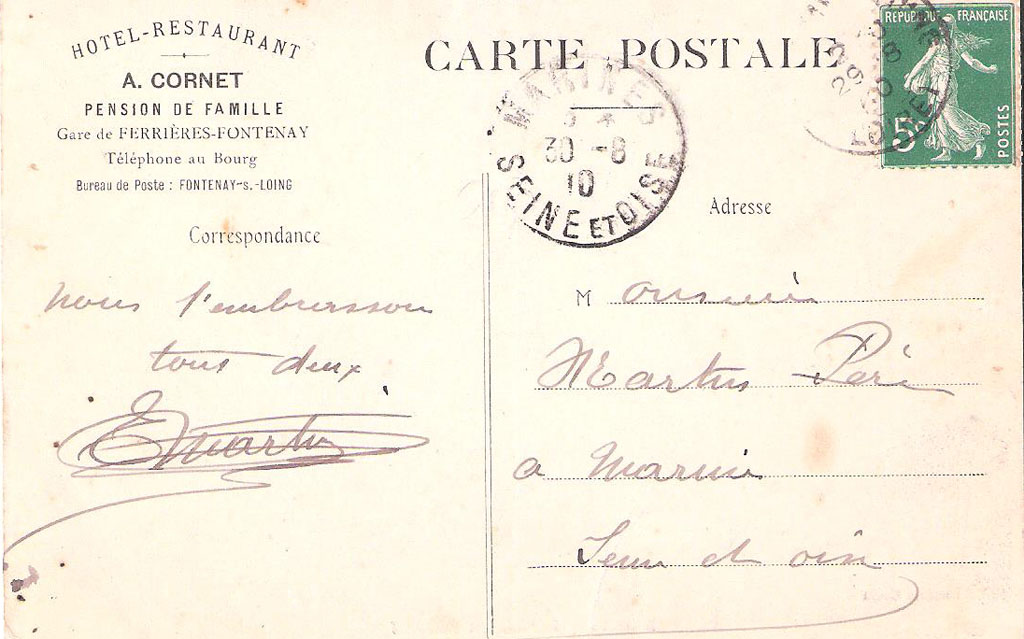 HOTEL-RESTAURANT
A. CORNET
PENSION DE FAMILLE
Gare de FERRIÈRES-FONTENAY
Téléphone au Bourg
Bureau de Poste : FONTENAY-s.-LOING
Correspondance
nous t'embrassons
tous deux
E Martin
CARTE POSTALE
MARINES
30 -8
10
SEINE ET OISE
29 -8
LOIRET
RÉPUBLIQUE FRANÇAISE
5c
POSTES
Adresse
Monsieur
Martin Père
a Marines
Seine et oise